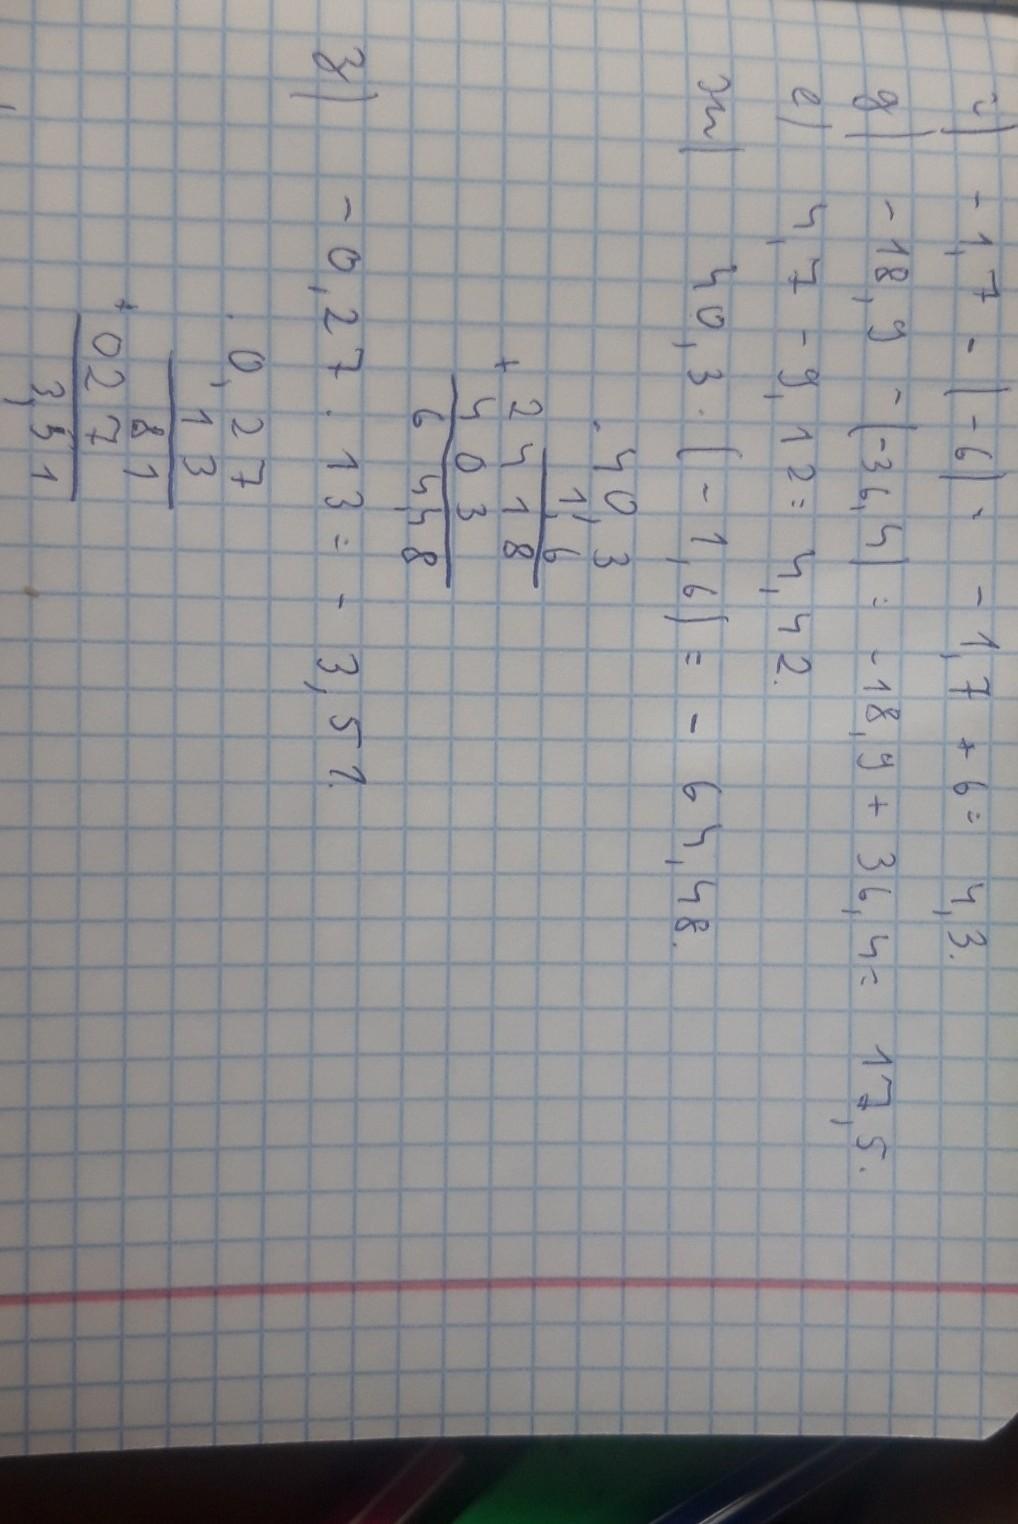 г) -1,7 - (-6) = -1,7 + 6 = 4,3.
д) -18,9 - (-36,4) = -18,9 + 36,4 = 17,5.
е) 4,7 - 9,12 = 4,42.
ж) 40,3 · (-1,6) = - 64,48.
· 40,3
1,6
+ 2418
403
64,48
з) - 0,27 · 13 = - 3,51.
· 0,27
13
+ 81
027
3,51